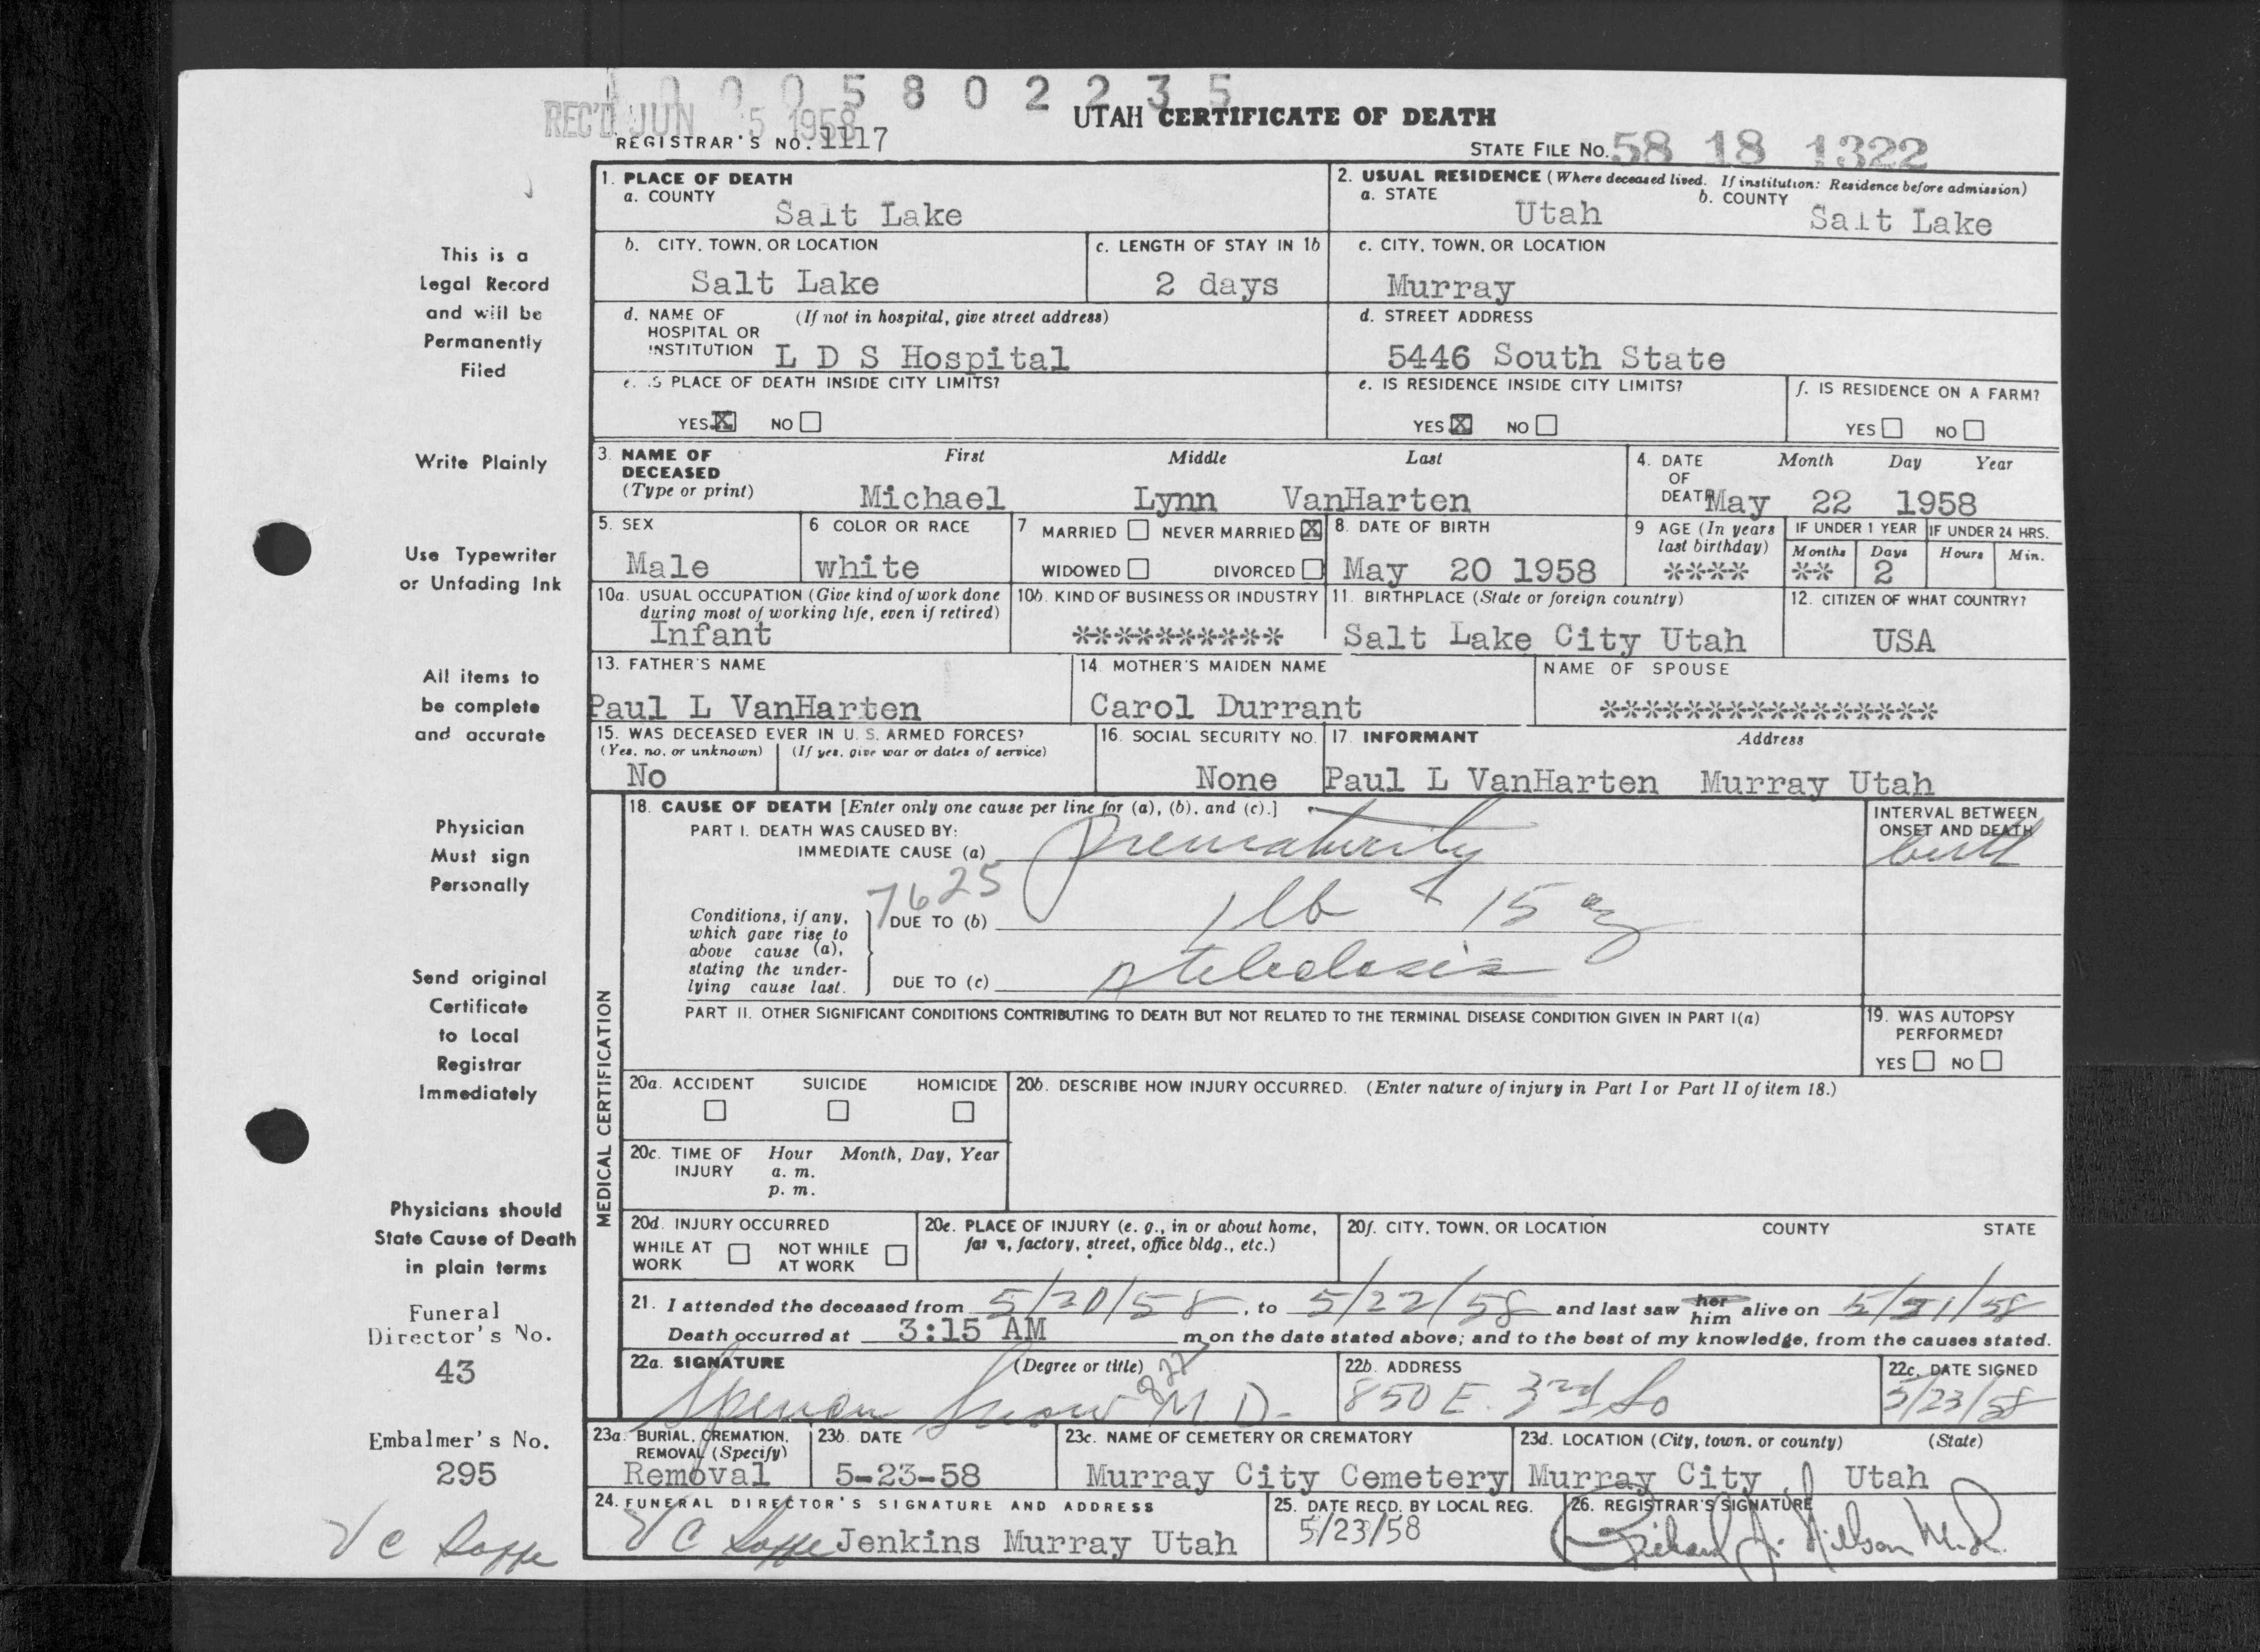 0 0 0 5 8 0 2 2 3 5
REC'D JUN 5 1958
UTAH CERTIFICATE OF DEATH
REGISTRAR'S NO. 1117
STATE FILE NO. 58 18 1322
1. PLACE OF DEATH
a. COUNTY
Salt Lake
2. USUAL RESIDENCE (Where deceased lived. If institution: Residence before admission)
a. STATE
Utah
b. COUNTY
Salt Lake
b. CITY, TOWN, OR LOCATION
Salt Lake
c. LENGTH OF STAY IN 1b
2 days
c. CITY, TOWN, OR LOCATION
Murray
d. NAME OF (If not in hospital, give street address)
HOSPITAL OR
INSTITUTION L D S Hospital
d. STREET ADDRESS
5446 South State
e. IS PLACE OF DEATH INSIDE CITY LIMITS?
YES X NO
e. IS RESIDENCE INSIDE CITY LIMITS?
YES X NO
f. IS RESIDENCE ON A FARM?
YES NO
3. NAME OF DECEASED (Type or print)
First Middle Last
Michael Lynn VanHarten
4. DATE OF DEATH
Month Day Year
May 22 1958
5. SEX
Male
6 COLOR OR RACE
white
7 MARRIED NEVER MARRIED X
WIDOWED DIVORCED
8. DATE OF BIRTH
May 20 1958
9 AGE (In years last birthday)
****
IF UNDER 1 YEAR
Months Days
** 2
IF UNDER 24 HRS.
Hours Min.
10a. USUAL OCCUPATION (Give kind of work done
during most of working life, even if retired)
Infant
10b. KIND OF BUSINESS OR INDUSTRY
**********
11. BIRTHPLACE (State or foreign country)
Salt Lake City Utah
12. CITIZEN OF WHAT COUNTRY?
USA
13. FATHER'S NAME
Paul L VanHarten
14. MOTHER'S MAIDEN NAME
Carol Durrant
NAME OF SPOUSE
****************
15. WAS DECEASED EVER IN U. S. ARMED FORCES?
(Yes, no, or unknown) (If yes, give war or dates of service)
No
16. SOCIAL SECURITY NO.
None
17. INFORMANT Address
Paul L VanHarten Murray Utah
MEDICAL CERTIFICATION
18. CAUSE OF DEATH [Enter only one cause per line for (a), (b), and (c).]
PART I. DEATH WAS CAUSED BY:
IMMEDIATE CAUSE (a) prematurity
INTERVAL BETWEEN
ONSET AND DEATH
birth
7625
Conditions, if any,
which gave rise to
above cause (a),
stating the under-
lying cause last.
DUE TO (b) 1 lb + 15 oz
DUE TO (c)
PART II. OTHER SIGNIFICANT CONDITIONS CONTRIBUTING TO DEATH BUT NOT RELATED TO THE TERMINAL DISEASE CONDITION GIVEN IN PART I(a)
19. WAS AUTOPSY
PERFORMED?
YES NO
20a. ACCIDENT SUICIDE HOMICIDE
20b. DESCRIBE HOW INJURY OCCURRED. (Enter nature of injury in Part I or Part II of item 18.)
20c. TIME OF INJURY
Hour Month, Day, Year
a. m.
p. m.
20d. INJURY OCCURRED
WHILE AT WORK NOT WHILE AT WORK
20e. PLACE OF INJURY (e. g., in or about home,
farm, factory, street, office bldg., etc.)
20f. CITY, TOWN, OR LOCATION COUNTY STATE
21. I attended the deceased from 5/20/58, to 5/22/58 and last saw her him alive on 5/21/58
Death occurred at 3:15 AM m on the date stated above; and to the best of my knowledge, from the causes stated.
22a. SIGNATURE (Degree or title)
Spencer Snow M D.
22b. ADDRESS
850 E. 3rd So
22c. DATE SIGNED
5/23/58
23a. BURIAL, CREMATION,
REMOVAL (Specify)
Removal
23b. DATE
5-23-58
23c. NAME OF CEMETERY OR CREMATORY
Murray City Cemetery
23d. LOCATION (City, town, or county) (State)
Murray City, Utah
24. FUNERAL DIRECTOR'S SIGNATURE AND ADDRESS
V C Jenkins Murray Utah
25. DATE RECD. BY LOCAL REG.
5/23/58
26. REGISTRAR'S SIGNATURE
This is a
Legal Record
and will be
Permanently
Filed
Write Plainly
Use Typewriter
or Unfading Ink
All items to
be complete
and accurate
Physician
Must sign
Personally
Send original
Certificate
to Local
Registrar
Immediately
Physicians should
State Cause of Death
in plain terms
Funeral
Director's No.
43
Embalmer's No.
295
V C